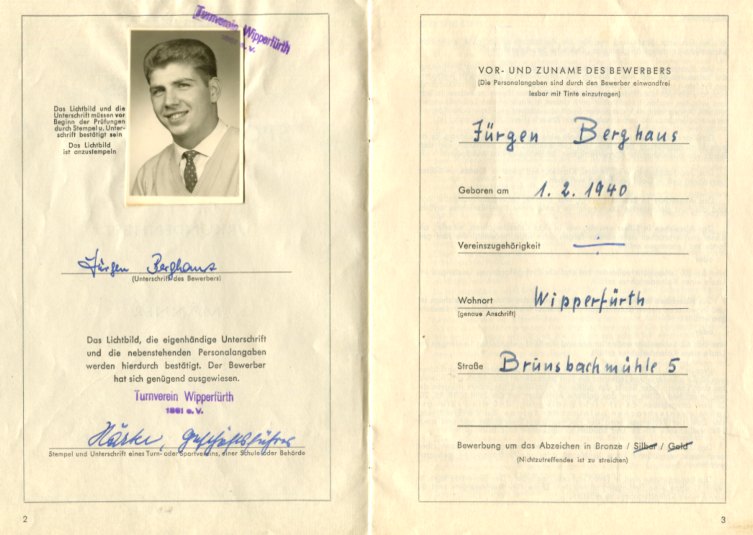 Turnverein Wipperfürth
1861 e. V.
Das Lichtbild und die
Unterschrift müssen vor
Beginn der Prüfungen
durch Stempel u. Unter-
schrift bestätigt sein
Das Lichtbild
ist anzustempeln
Jürgen Berghaus
(Unterschrift des Bewerbers)
Das Lichtbild, die eigenhändige Unterschrift
und die nebenstehenden Personalangaben
werden hierdurch bestätigt. Der Bewerber
hat sich genügend ausgewiesen.
Turnverein Wipperfürth
1861 e. V.
Geschäftsführer
Stempel und Unterschrift eines Turn- oder Sportvereins, einer Schule oder Behörde
2
VOR- UND ZUNAME DES BEWERBERS
(Die Personalangaben sind durch den Bewerber einwandfrei
lesbar mit Tinte einzutragen)
Jürgen Berghaus
Geboren am 1. 2. 1940
Vereinszugehörigkeit
Wohnort Wipperfürth
(genaue Anschrift)
Straße Brunsbachmühle 5
Bewerbung um das Abzeichen in Bronze / Silber / Gold
(Nichtzutreffendes ist zu streichen)
3